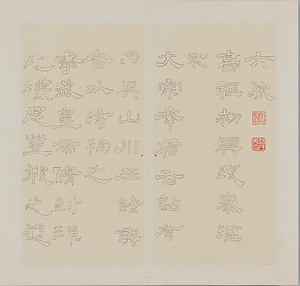 高祖初興改秦淫
祀
大宗承循各詔有
司其山川在諸侯
者以時祠之
孝武皇帝脩封禪
之禮思登假之道